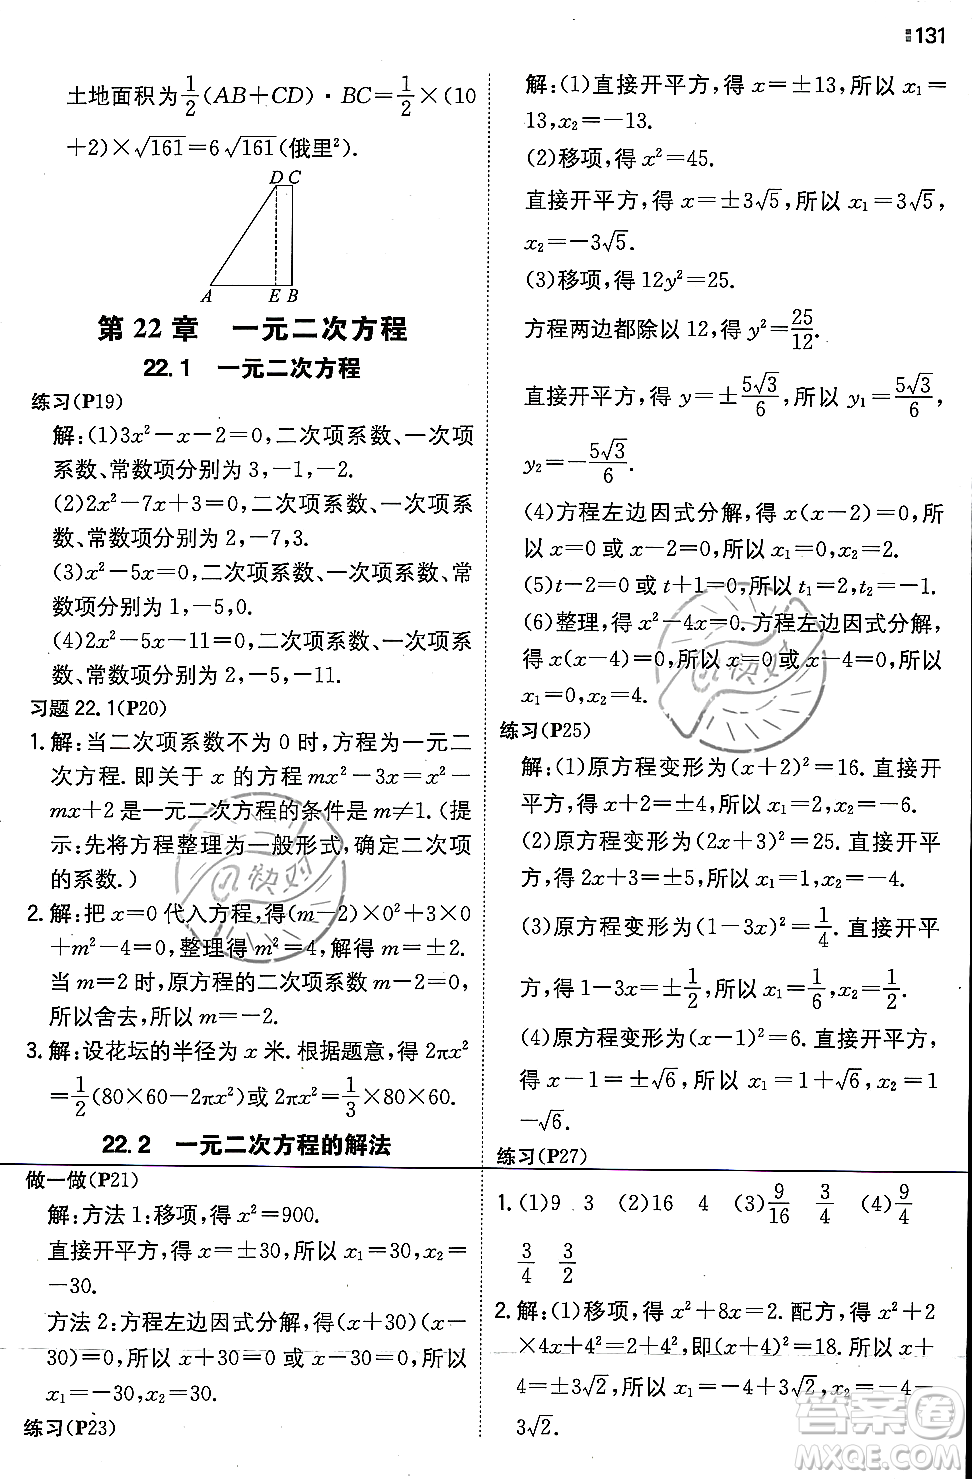 131
土地面积为1/2(AB+CD)·BC=1/2×(10
+2)×√161=6√161(俄里²).
D C
A E B
第 22 章 一元二次方程
22.1 一元二次方程
练习(P19)
解:(1)3x²-x-2=0,二次项系数、一次项
系数、常数项分别为 3,-1,-2.
(2)2x²-7x+3=0,二次项系数、一次项系
数、常数项分别为 2,-7,3.
(3)x²-5x=0,二次项系数、一次项系数、常
数项分别为 1,-5,0.
(4)2x²-5x-11=0,二次项系数、一次项系
数、常数项分别为 2,-5,-11.
习题 22.1(P20)
1. 解:当二次项系数不为 0 时,方程为一元二
次方程. 即关于 x 的方程 mx²-3x=x²-
mx+2 是一元二次方程的条件是 m≠1.(提
示:先将方程整理为一般形式,确定二次项
的系数.)
2. 解:把 x=0 代入方程,得(m-2)×0²+3×0
+m²-4=0,整理得 m²=4,解得 m=±2.
当 m=2 时,原方程的二次项系数 m-2=0,
所以舍去,所以 m=-2.
3. 解:设花坛的半径为 x 米. 根据题意,得 2πx²
=1/2(80×60-2πx²)或 2πx²=1/3×80×60.
22.2 一元二次方程的解法
做一做(P21)
解:方法 1:移项,得 x²=900.
直接开平方,得 x=±30,所以 x₁=30,x₂=
-30.
方法 2:方程左边因式分解,得(x+30)(x-
30)=0,所以 x+30=0 或 x-30=0,所以
x₁=-30,x₂=30.
练习(P23)
解:(1)直接开平方,得 x=±13,所以 x₁=
13,x₂=-13.
(2)移项,得 x²=45.
直接开平方,得 x=±3√5,所以 x₁=3√5,
x₂=-3√5.
(3)移项,得 12y²=25.
方程两边都除以 12,得 y²=25/12.
直接开平方,得 y=±5√3/6,所以 y₁=5√3/6,
y₂=-5√3/6.
(4)方程左边因式分解,得 x(x-2)=0,所
以 x=0 或 x-2=0,所以 x₁=0,x₂=2.
(5)t-2=0 或 t+1=0,所以 t₁=2,t₂=-1.
(6)整理,得 x²-4x=0. 方程左边因式分解,
得 x(x-4)=0,所以 x=0 或 x-4=0,所以
x₁=0,x₂=4.
练习(P25)
解:(1)原方程变形为(x+2)²=16. 直接开
平方,得 x+2=±4,所以 x₁=2,x₂=-6.
(2)原方程变形为(2x+3)²=25. 直接开平
方,得 2x+3=±5,所以 x₁=1,x₂=-4.
(3)原方程变形为(1-3x)²=1/4. 直接开平
方,得 1-3x=±1/2,所以 x₁=1/6,x₂=1/2.
(4)原方程变形为(x-1)²=6. 直接开平方,
得 x-1=±√6,所以 x₁=1+√6,x₂=1
-√6.
练习(P27)
1. (1)9 3 (2)16 4 (3)9/16 3/4 (4)9/4
3/4 3/2
2. 解:(1)移项,得 x²+8x=2. 配方,得 x²+2
×4x+4²=2+4²,即(x+4)²=18. 所以 x+4
=±3√2,所以 x₁=-4+3√2,x₂=-4-
3√2.
快对
快对
答案圈
MXQE.COM